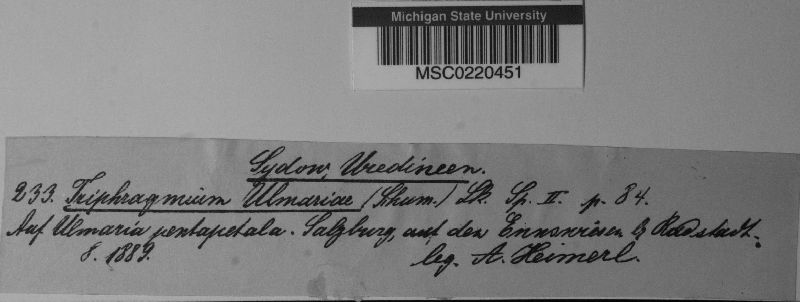 Michigan State University
MSC0220451
Sydow, Uredineen.
233. Triphragmium Ulmariae (Schum.) Lk. Sp. II. p. 84.
Auf Ulmaria pentapetala. Salzburg, auf den Ennswiesen b. Radstadt.
8. 1889. leg. A. Heimerl.